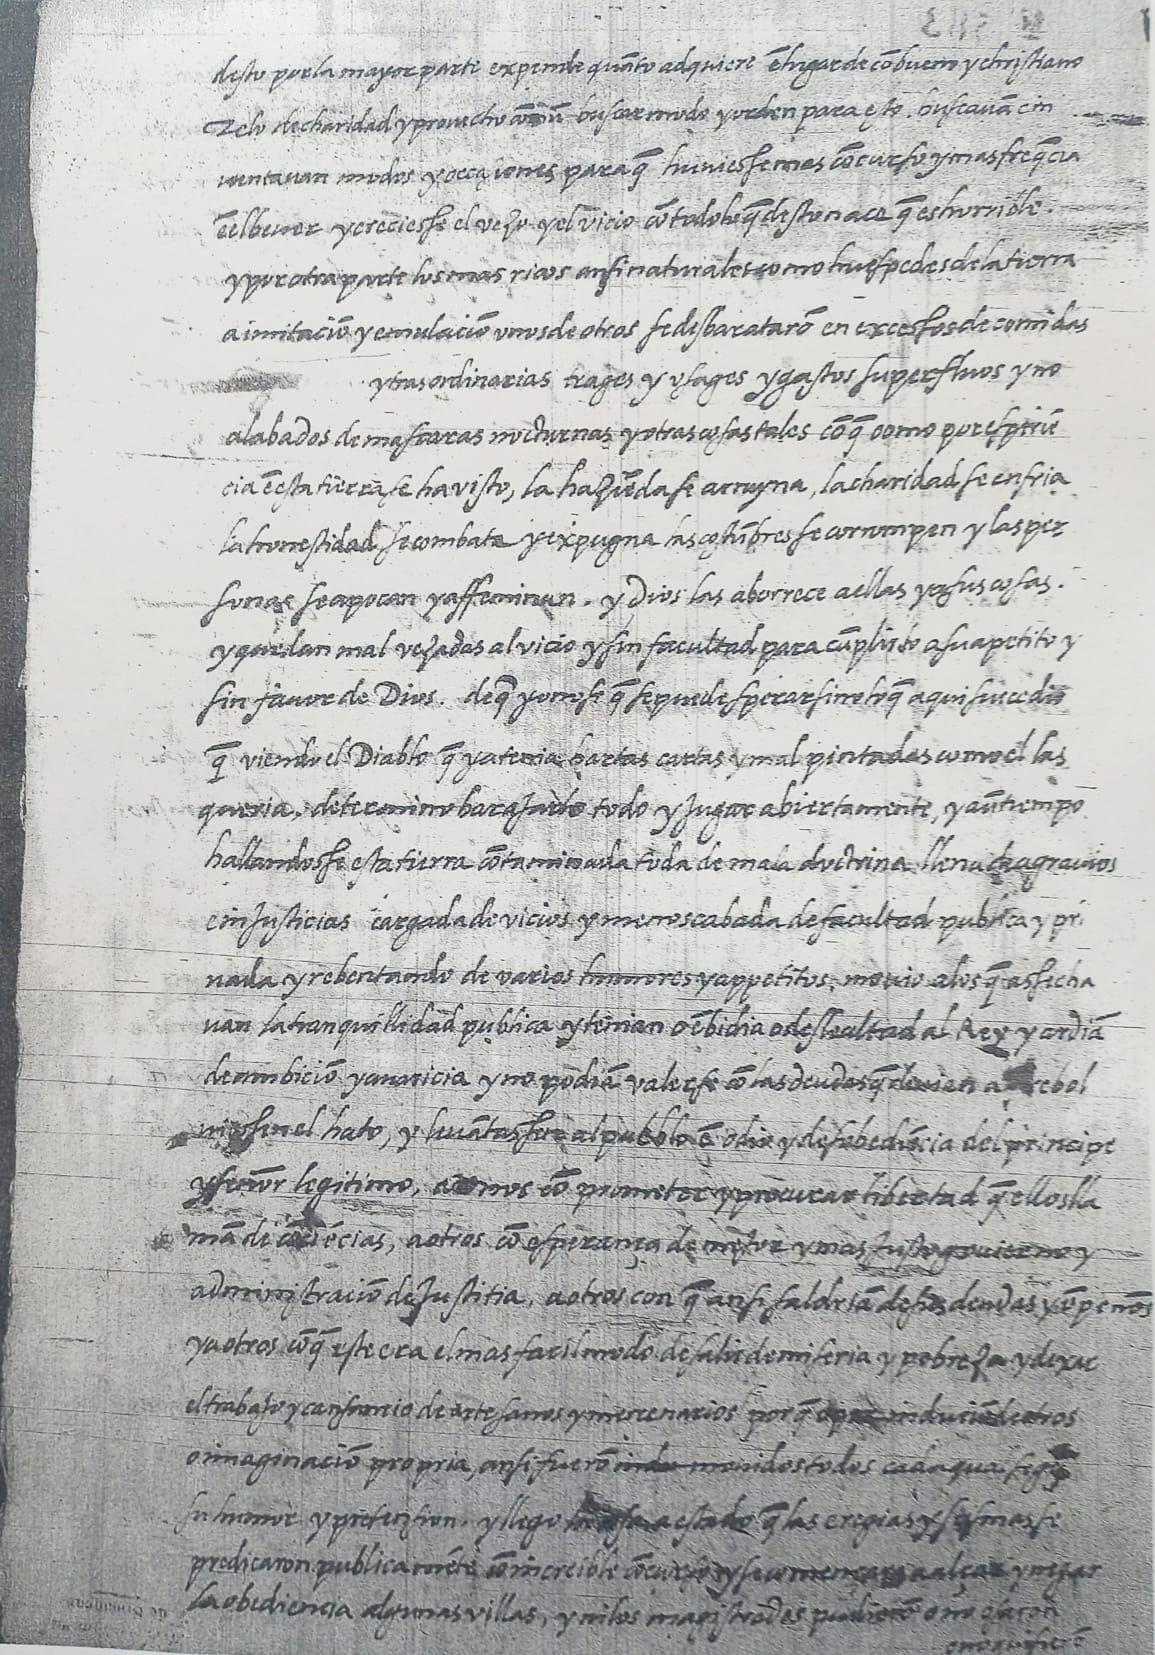 desto por la mayor parte expende quãto adquiere ẽ lugar de cõ bueno y christiano
zelo de charidad y prouecho comũ buscar modo y orden para esto. buscauã e in
uentauan modos y occasiones para q̃ huuiesse mas cõcurso y mas freq̃cia
ẽ el beuer y creciesse el vezo y el vicio cõ todo lo q̃ desto nace q̃ es horrible.
y por otra parte los mas ricos ansi naturales como huespedes de la tierra
a imitaciõ y emulaciõ vnos de otros se desbaratarõ en excessos de comidas
ytraordinarias trages y vsages y gastos superfluos y no
alabados de mascaras nocturnas y otras cosas tales cõ q̃ como por esperiẽ
cia ẽ esta tierra se ha visto, la haziẽda se arruyna, la charidad se enfria
la honestidad se combate y expugna las costũbres se corrumpen y las per
sonas se apocan y affeminan. y Dios las aborrece a ellas y a sus cosas.
y quedan mal vezadas al vicio y sin facultad para cũplirlo a su apetito y
sin fauor de Dios. de q̃ yo no se q̃ se puede sperar sino lo q̃ aqui sucedio
q̃ viendo el Diablo q̃ ya tenia hartas cartas y mal pintadas como el las
queria, determino barajarlo todo y jugar abiertamente, y a ũ tiempo
hallandosse esta tierra cõtaminada toda de mala doctrina llena de agrauios
e injusticias cargada de vicios y menoscabada de facultad publica y pri
uada y rebentando de varios humores y appetitos, mouio a los q̃ assecha
uan la tranquillidad publica y tenian o ẽbidia o deslealtad al Rey y ardiã
de ambiciõ y auaricia y no podiã valerse cõ las deudas q̃ deuien a rebol
uiessen el hato, y leuãtassen al pueblo ẽ odio y desobediẽcia del principe
y señor legitimo, a vnos cõ prometer y procurar libertad q̃ ellos lla
mã de cõciẽcias, a otros cõ esperança de mejor y mas justo gouierno y
administraciõ de justitia, a otros con q̃ ansi saldriã de sus deudas y ẽpeños
y a otros cõ q̃ este era el mas facil modo de salir de miseria y pobreza y dexar
el trabajo y cansancio de artesanos y mercenarios porq̃ o por induciõ de otros
o imaginaciõ propria, ansi fuerõ mouidos todos cada qual segũ
su humor y pretension. y llego la cosa a estado q̃ las eregias y scismas se
predicaron publicamẽte cõ increible cõcurso y se començarõ a alçar y negar
la obediencia algunas villas, y ni los magistrados pudierõ o no osaron
o no quisierõ